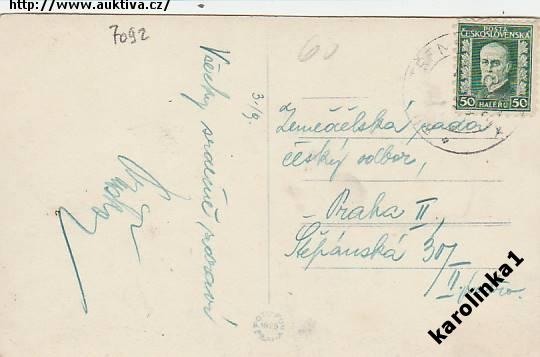 http://www.auktiva.cz/
7092
60
POŠTA
ČESKOSLOVENSKÁ
50 HALÉŘŮ 50
3./9.
Všechny srdečně zdraví
Zemědělská rada
český odbor,
Praha II,
Štěpánská 30/
II.
karolinka1